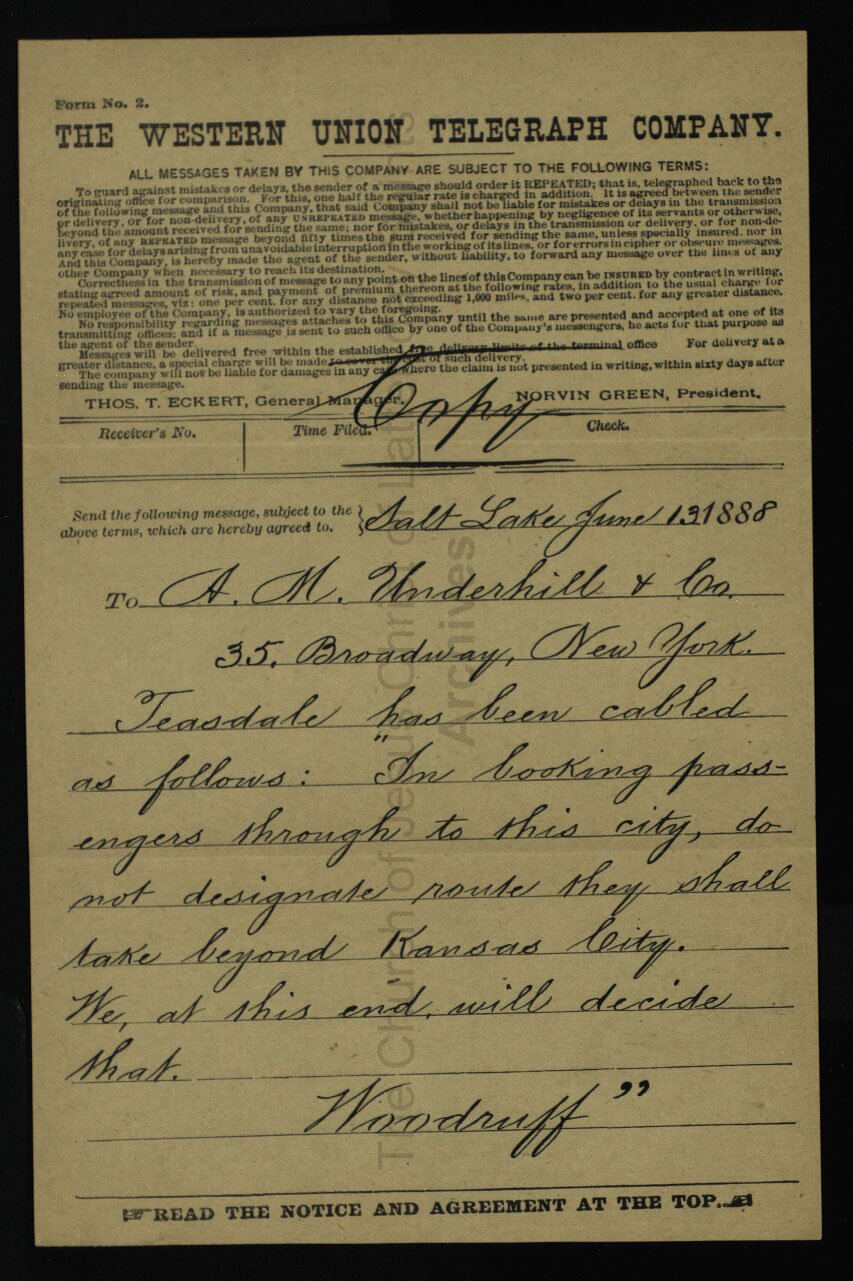 Form No. 2.
THE WESTERN UNION TELEGRAPH COMPANY.
ALL MESSAGES TAKEN BY THIS COMPANY ARE SUBJECT TO THE FOLLOWING TERMS:
To guard against mistakes or delays, the sender of a message should order it REPEATED; that is, telegraphed back to the
originating office for comparison. For this, one half the regular rate is charged in addition. It is agreed between the sender
of the following message and this Company, that said Company shall not be liable for mistakes or delays in the transmission
or delivery, or for non-delivery, of any UNREPEATED message, whether happening by negligence of its servants or otherwise,
beyond the amount received for sending the same; nor for mistakes, or delays in the transmission or delivery, or for non-de-
livery, of any REPEATED message beyond fifty times the sum received for sending the same, unless specially insured, nor in
any case for delays arising from unavoidable interruption in the working of its lines, or for errors in cipher or obscure messages.
And this Company, is hereby made the agent of the sender, without liability, to forward any message over the lines of any
other Company when necessary to reach its destination.
Correctness in the transmission of message to any point on the lines of this Company can be INSURED by contract in writing,
stating agreed amount of risk, and payment of premium thereon at the following rates, in addition to the usual charge for
repeated messages, viz: one per cent. for any distance not exceeding 1,000 miles, and two per cent. for any greater distance.
No employee of the Company, is authorized to vary the foregoing.
No responsibility regarding messages attaches to this Company until the same are presented and accepted at one of its
transmitting offices; and if a message is sent to such office by one of the Company's messengers, he acts for that purpose as
the agent of the sender
Messages will be delivered free within the established free delivery limits of the terminal office For delivery at a
greater distance, a special charge will be made to cover the cost of such delivery.
The company will not be liable for damages in any case where the claim is not presented in writing, within sixty days after
sending the message.
THOS. T. ECKERT, General Manager. NORVIN GREEN, President.
Copy
Receiver's No. Time Filed. Check.
Send the following message, subject to the
above terms, which are hereby agreed to.
Salt Lake June 13 1888
To A. M. Underhill & Co.
35, Broadway, New York.
Teasdale has been cabled
as follows: "In booking pass-
engers through to this city, do
not designate route they shall
take beyond Kansas City.
We, at this end, will decide
that.
Woodruff"
READ THE NOTICE AND AGREEMENT AT THE TOP.
Archives